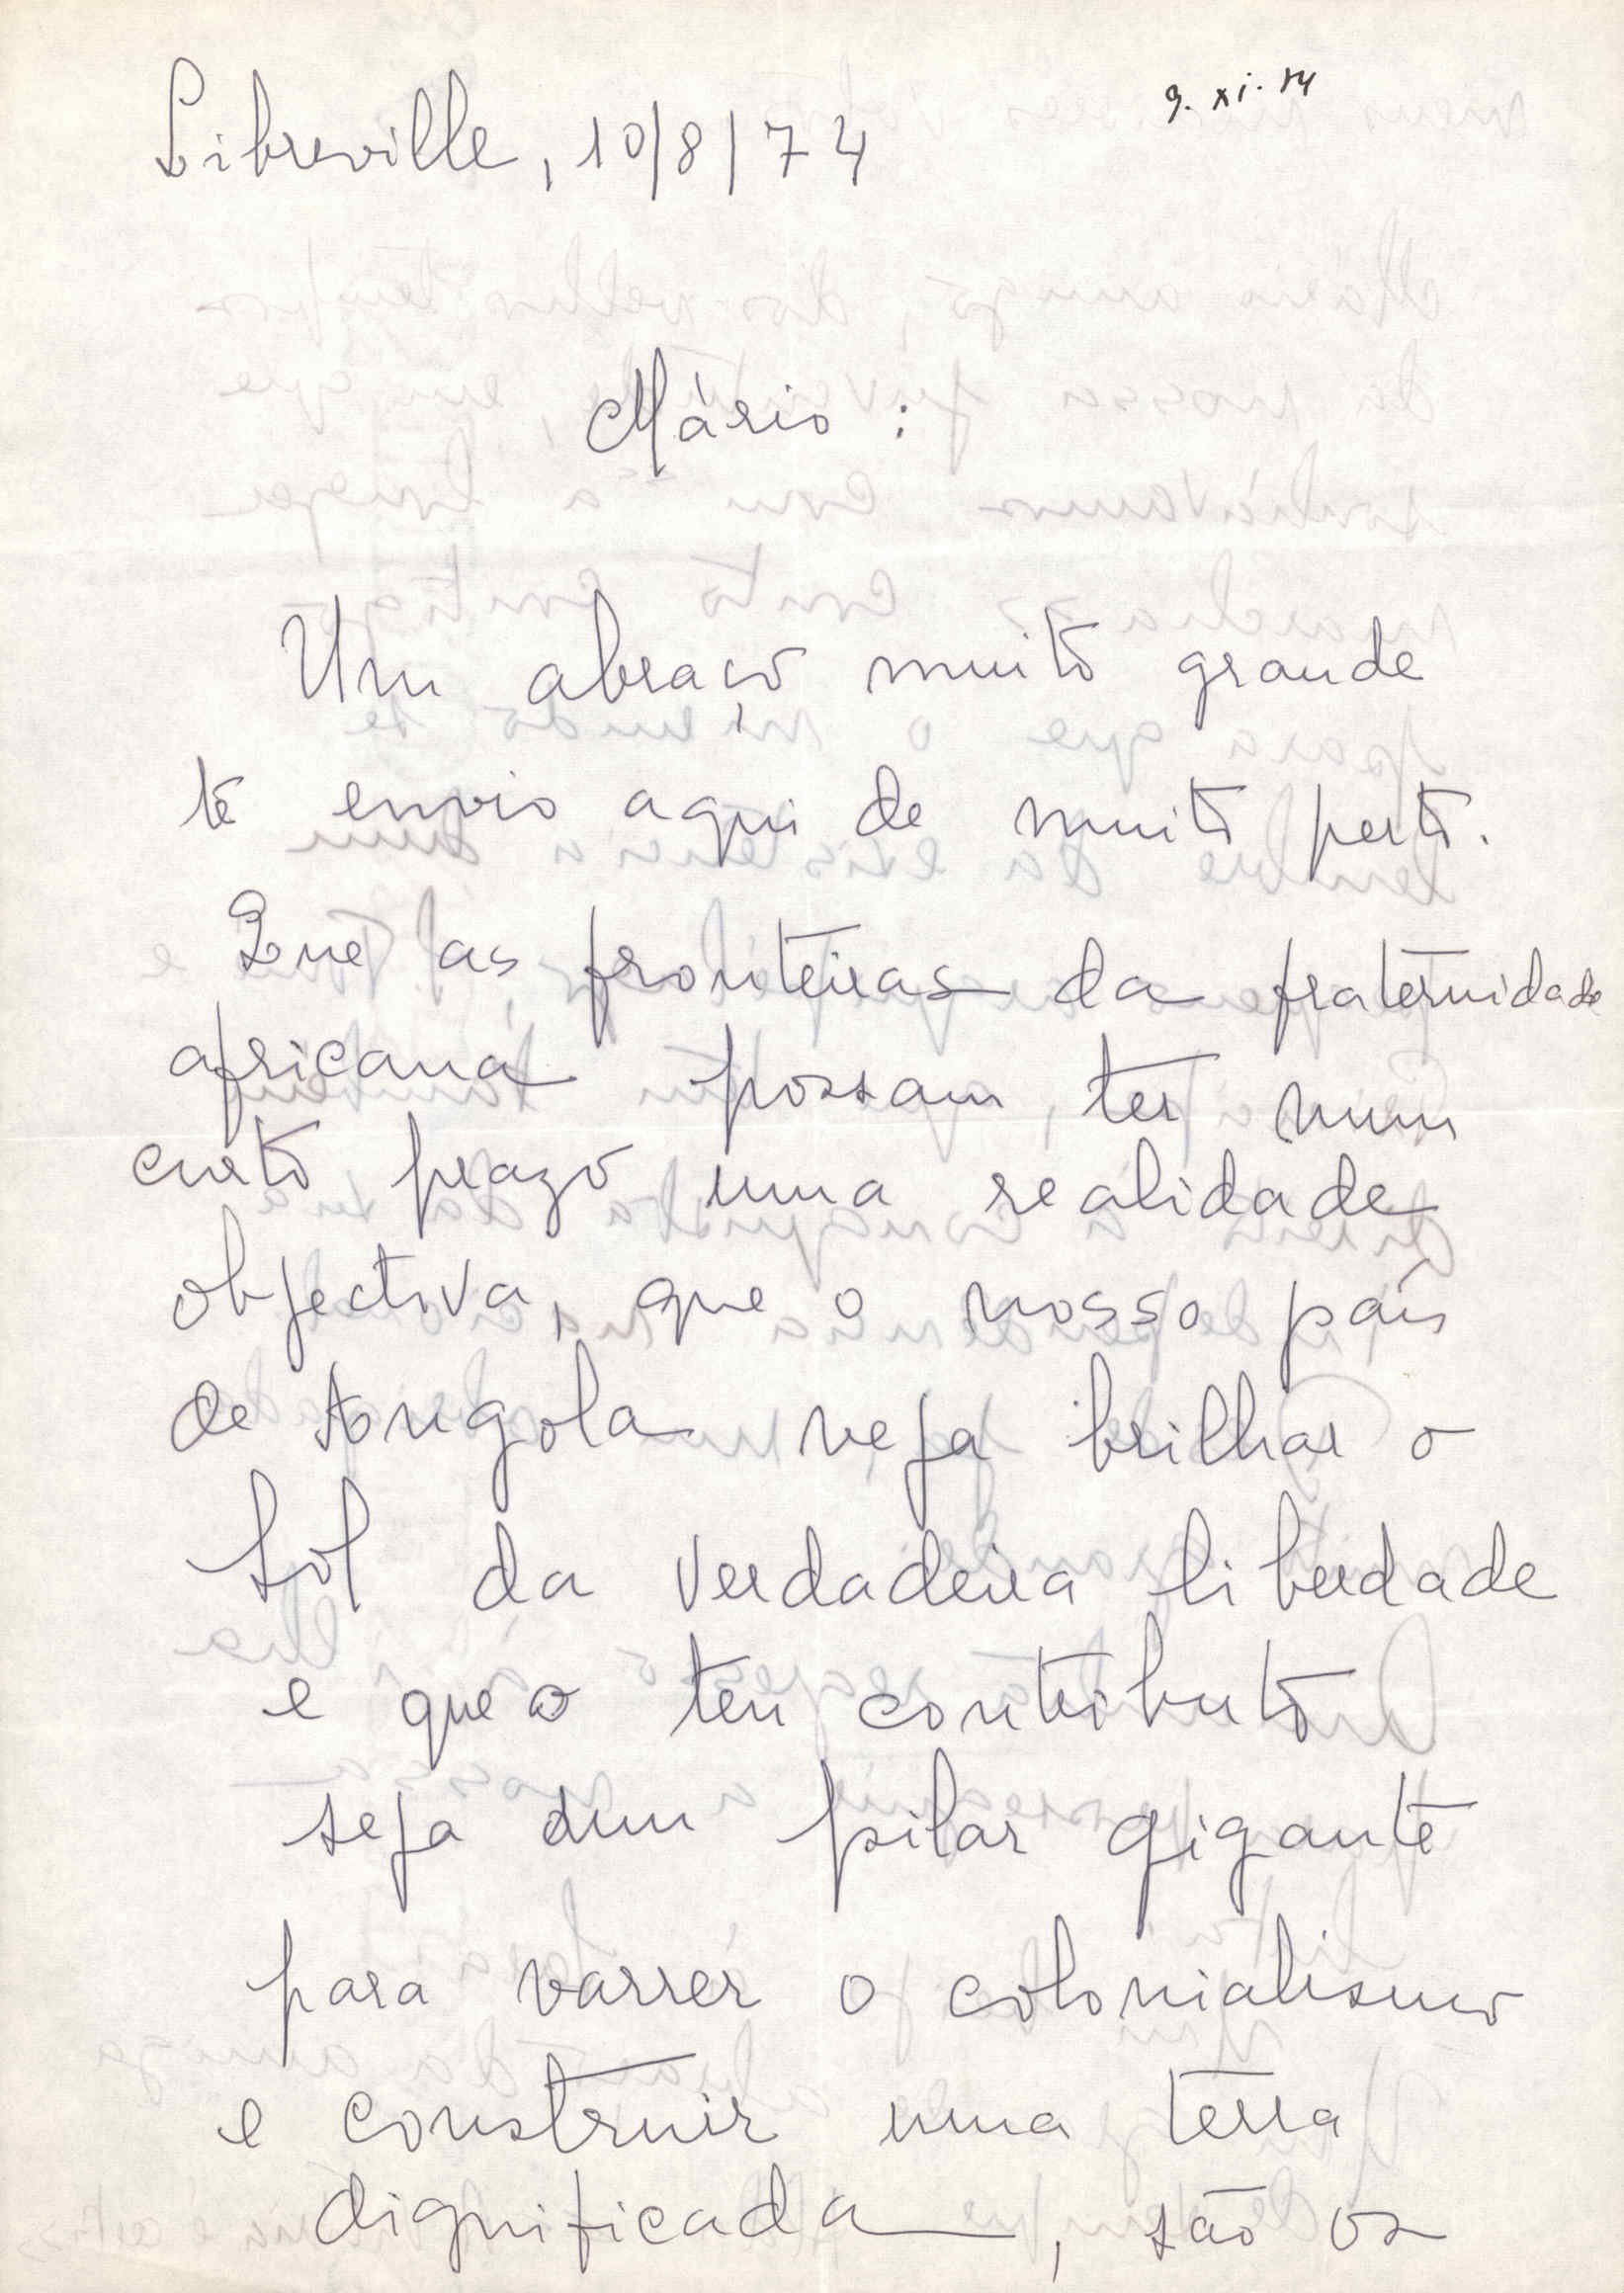 9. xi. 74
Libreville, 10/8/74
Mário :
Um abraço muito grande
te envio aqui de muito perto.
Que as fronteiras da fraternidade
africana possam, ter num
curto prazo uma realidade
objectiva, que o nosso país
de Angola veja brilhar o
Sol da verdadeira liberdade
e que o teu contributo
seja dum pilar gigante
para varrer o colonialismo
e construir uma terra
dignificada, são os